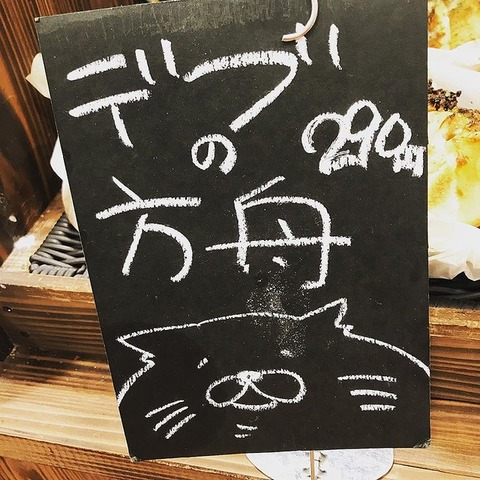 デブ
の
290円
方舟